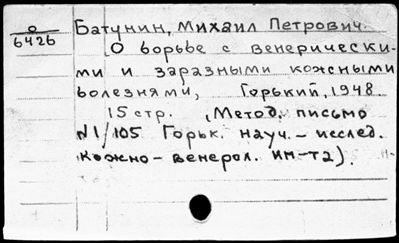 О
6426
Батунин, Михаил Петрович.
О борьбе с венерически-
ми и заразными кожными
болезнями, Горький, 1948.
15 стр. (Метод. письмо
N1/105 Горьк. науч.- исслед.
кожно-венерол. ин-та).